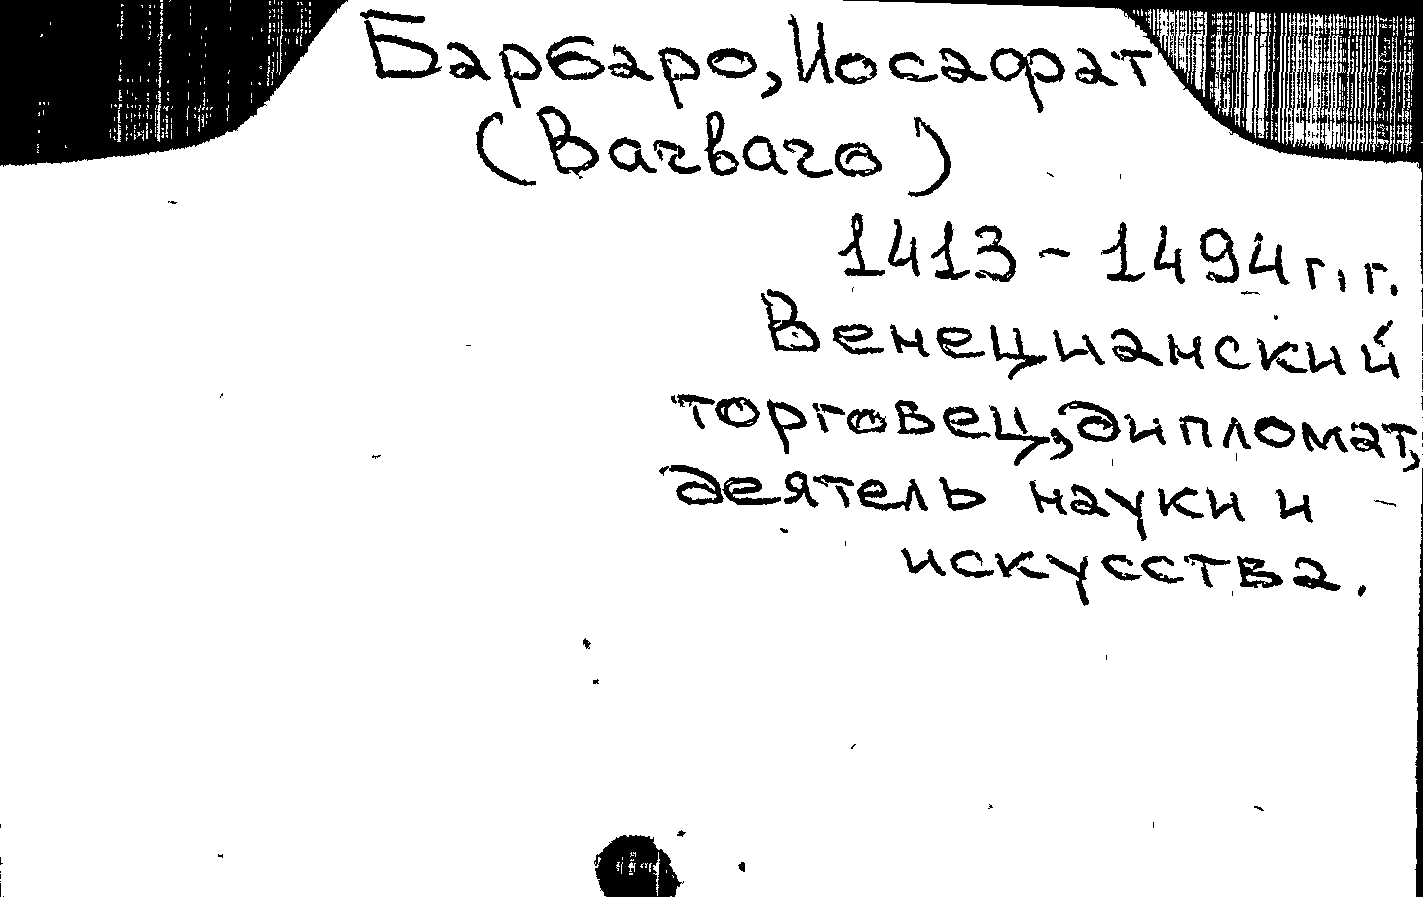 Барбаро, Иосафат
(Barbaro)
1413 - 1494 г.г.
Венецианский
торговец, дипломат,
деятель науки и
искусства.